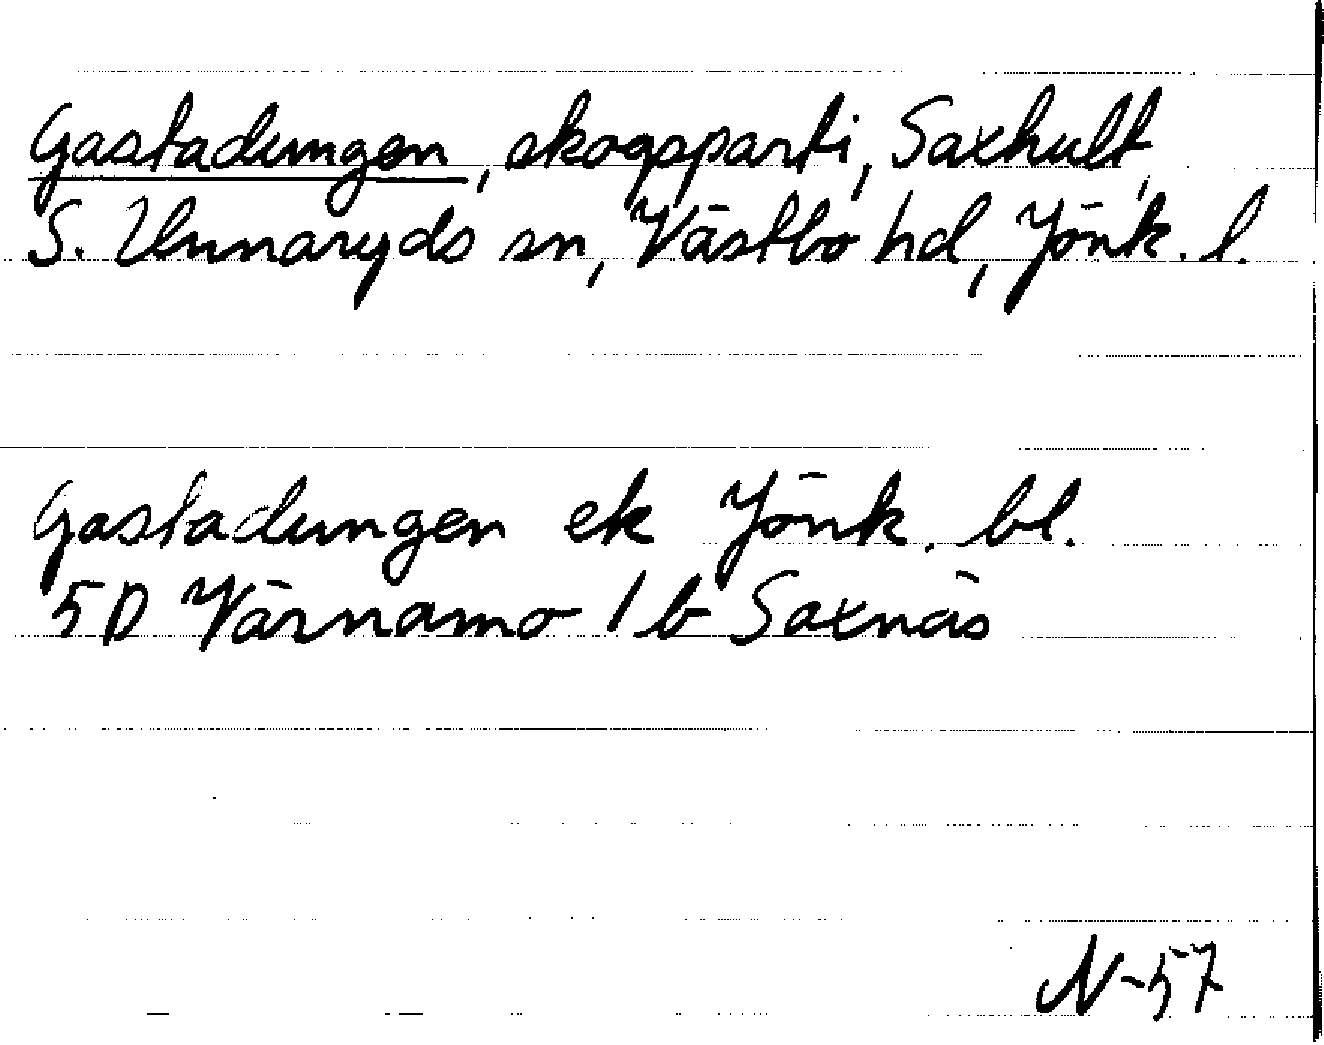 Gastadungen, skogsparti, Saxhult,
S. Unnaryds sn, Västbo hd, Jönk. l.
Gastadungen ek Jönk. bl.
5D Värnamo 1b Saxnäs
N-57